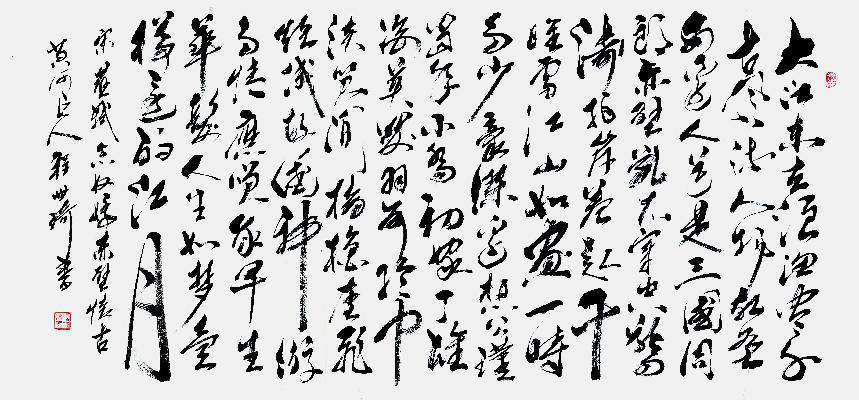 大江东去浪淘尽千
古風流人物故垒
西邊人道是三國周
郎赤壁乱石穿空驚
濤拍岸卷起千
堆雪江山如畫一時
多少豪傑遥想公瑾
當年小喬初嫁了雄
姿英發羽扇纶巾
谈笑间樯橹灰飛
烟滅故國神游
多情應笑我早生
華髮人生如梦壹
樽還酹江月
宋蘇軾念奴嬌赤壁懷古
黄河人程書